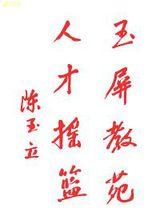 玉屏教苑
人才摇篮
陈玉立